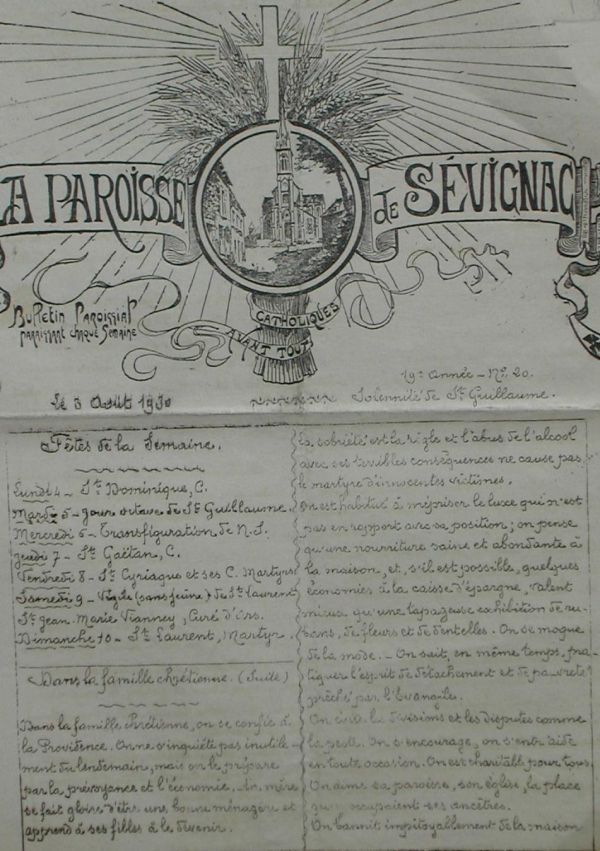 LA PAROISSE
de SÉVIGNAC
Bulletin Paroissial
paraissant chaque Semaine
CATHOLIQUES
AVANT TOUT
19e Année – No 20.
Le 3 Août 1930
Solennité de St Guillaume.
Fêtes de la Semaine.
Lundi 4 – St Dominique, C.
Mardi 5 – Jour octave de St Guillaume.
Mercredi 6 – Transfiguration de N. S.
Jeudi 7 – St Gaëtan, C.
Vendredi 8 – St Cyriaque et ses C. Martyrs
Samedi 9 – Vigile (sans jeûne) de St Laurent
St Jean Marie Vianney, Curé d'Ars.
Dimanche 10 – St Laurent, Martyr.
Dans la famille chrétienne. (Suite)
Dans la famille chrétienne, on se confie à
la Providence. On ne s'inquiète pas inutile-
ment du lendemain, mais on le prépare
par la prévoyance et l'économie. La mère
se fait gloire d'être une bonne ménagère et
apprend à ses filles à le devenir.
la sobriété est la règle et l'abus de l'alcool
avec ses terribles conséquences ne cause pas
le martyre d'innocentes victimes.
On est habitué à mépriser le luxe qui n'est
pas en rapport avec sa position ; on pense
qu'une nourriture saine et abondante à
la maison, et, s'il est possible, quelques
économies à la caisse d'épargne, valent
mieux qu'une tapageuse exhibition de ru-
bans, de fleurs et de dentelles. On se moque
de la mode. – On sait, en même temps, pra-
tiquer l'esprit de détachement et de pauvreté
prêché par l'Evangile.
On évite les divisions et les disputes comme
la peste. On s'encourage, on s'entr'aide
en toute occasion. On est charitable pour tous.
On aime sa paroisse, son église, la place
qu'y occupaient ses ancêtres.
On bannit impitoyablement de la maison